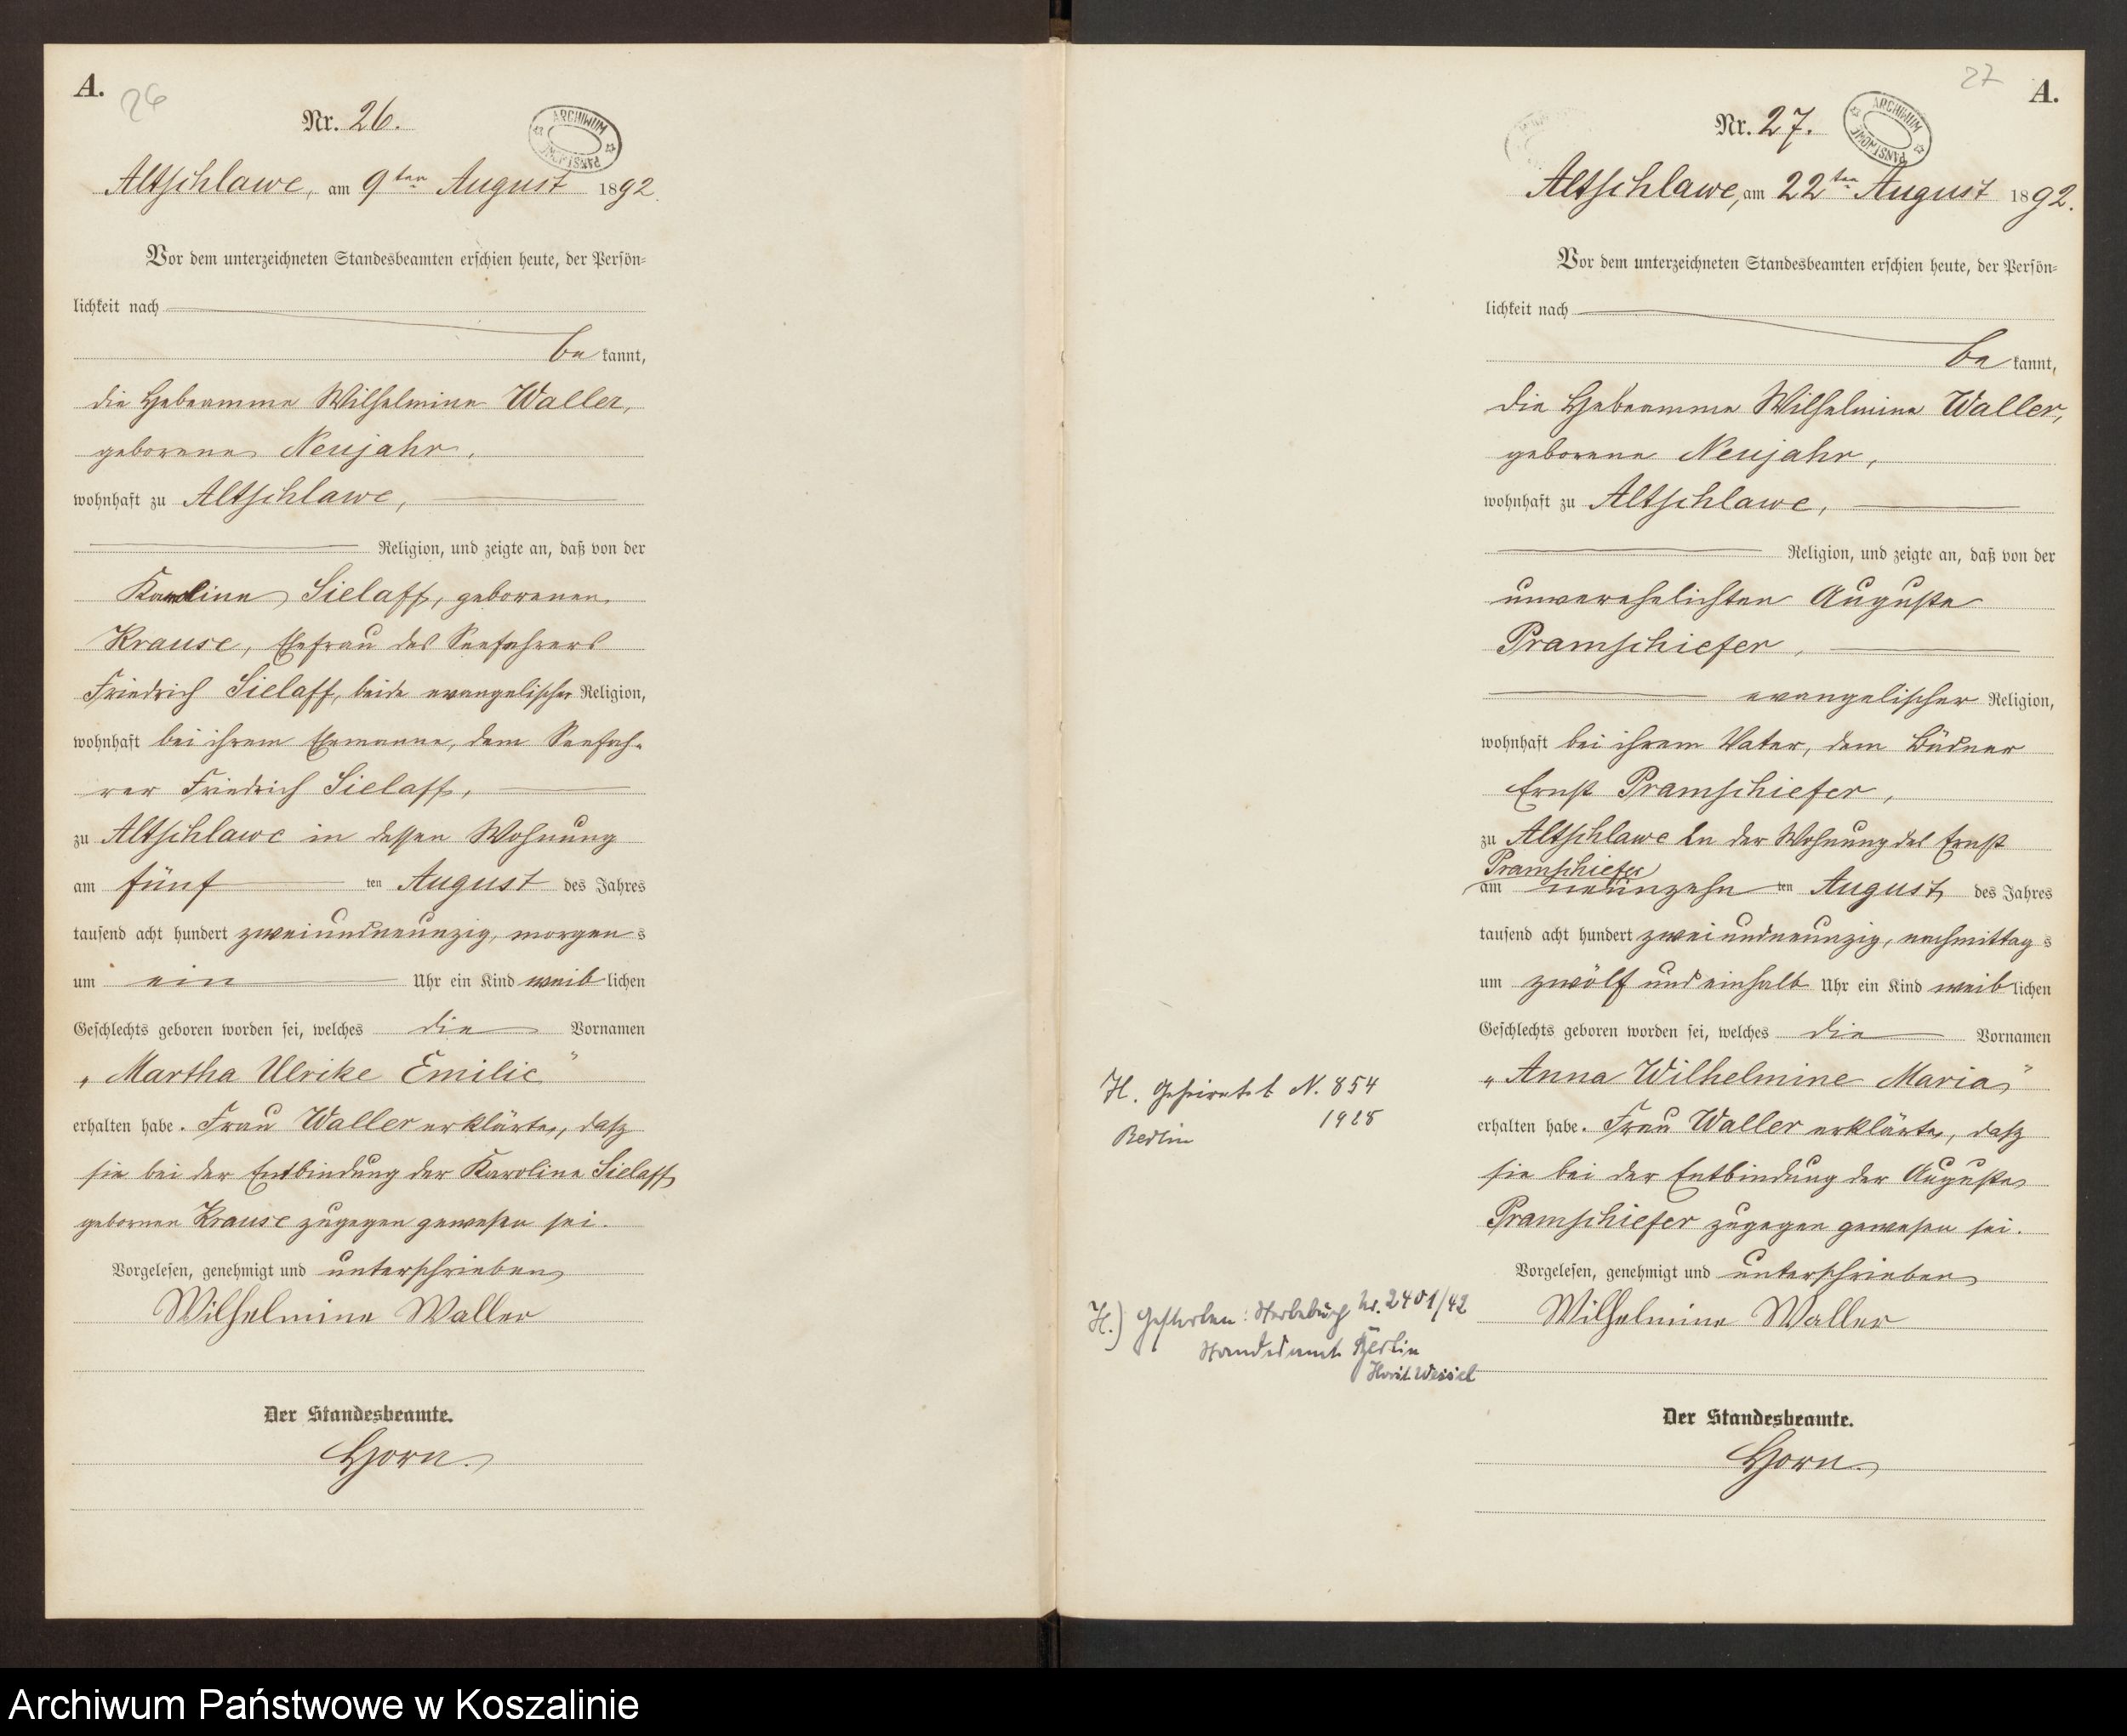 A.
26
Nr. 26.
ARCHIWUM PAŃSTWOWE
Altschlawe, am 9ten August 1892.
Vor dem unterzeichneten Standesbeamten erschien heute, der Persön-
lichkeit nach
be kannt,
die Hebeamme Wilhelmine Waller,
geborene Neujahr,
wohnhaft zu Altschlawe,
Religion, und zeigte an, daß von der
Karoline Sielaff, geborenen
Krause, Ehefrau des Seefahrers
Friedrich Sielaff, beide evangelischer Religion,
wohnhaft bei ihrem Ehemanne, dem Seefah-
rer Friedrich Sielaff,
zu Altschlawe in dessen Wohnung
am fünf ten August des Jahres
tausend acht hundert zweiundneunzig, morgens
um ein Uhr ein Kind weiblichen
Geschlechts geboren worden sei, welches die Vornamen
„Martha Ulrike Emilie"
erhalten habe. Frau Waller erklärte, dasz
sie bei der Entbindung der Karoline Sielaff
gebornen Krause zugegen gewesen sei.
Vorgelesen, genehmigt und unterschrieben
Wilhelmine Waller
Der Standesbeamte.
Horn.
27
A.
Nr. 27.
ARCHIWUM PAŃSTWOWE
Altschlawe, am 22ten August 1892.
Vor dem unterzeichneten Standesbeamten erschien heute, der Persön-
lichkeit nach
be kannt,
die Hebeamme Wilhelmine Waller,
geborene Neujahr,
wohnhaft zu Altschlawe,
Religion, und zeigte an, daß von der
unverehelichten Auguste
Pramschiefer,
evangelischer Religion,
wohnhaft bei ihrem Vater, dem Büdner
Ernst Pramschiefer,
zu Altschlawe in der Wohnung des Ernst
Pramschiefer
am neunzehn ten August des Jahres
tausend acht hundert zweiundneunzig, nachmittags
um zwölf und einhalb Uhr ein Kind weiblichen
Geschlechts geboren worden sei, welches die Vornamen
„Anna Wilhelmine Maria"
erhalten habe. Frau Waller erklärte, dasz
sie bei der Entbindung der Auguste
Pramschiefer zugegen gewesen sei.
Vorgelesen, genehmigt und unterschrieben
Wilhelmine Waller
Der Standesbeamte.
Horn.
H. Geheiratet N. 854
1928
Berlin
H.) Gestorben: Nr. 2401/42
Standesamt Berlin
Horst Wessel
Archiwum Państwowe w Koszalinie